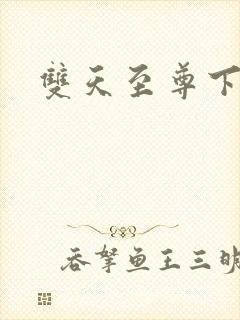 雙天至尊下
吞拏鱼王三